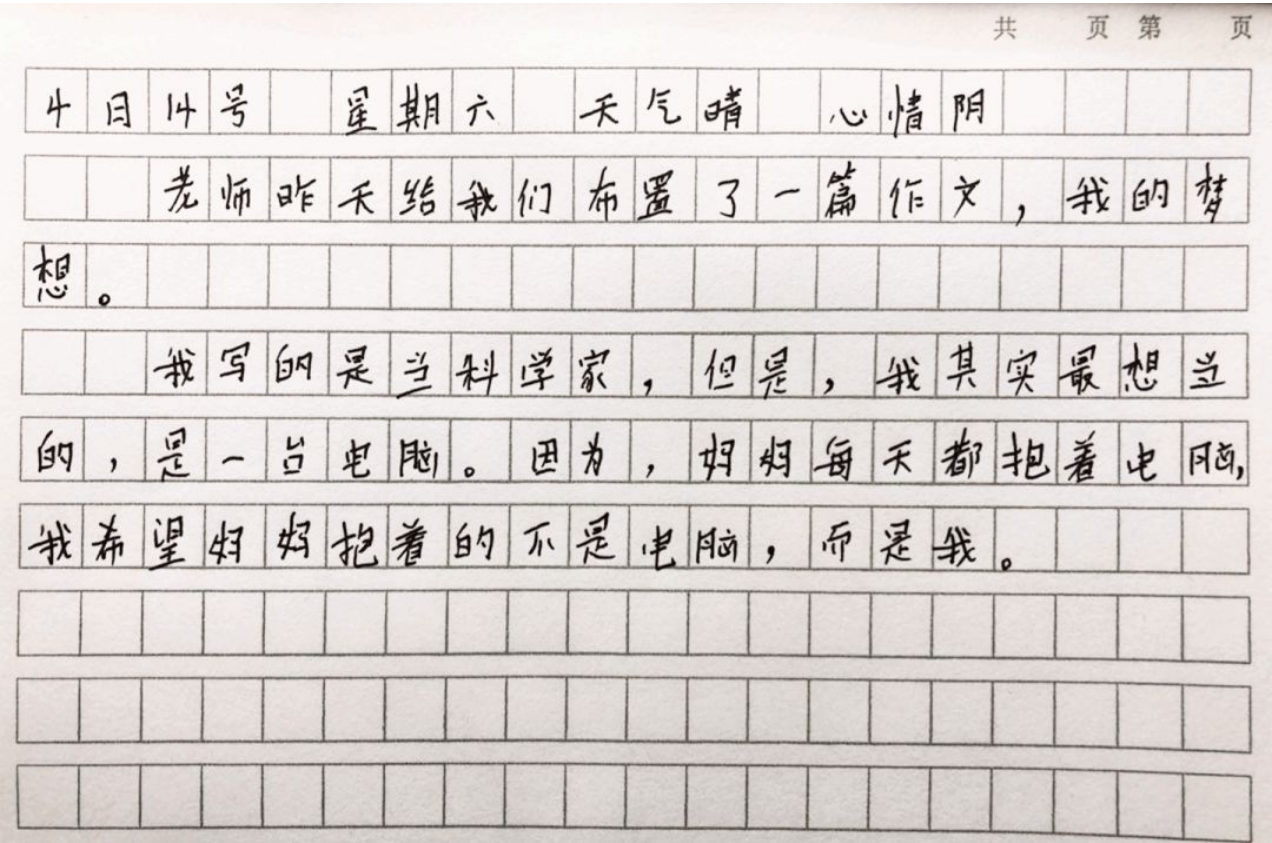 共 页 第 页
4日14号 星期六 天气晴 心情阴
老师昨天给我们布置了一篇作文，我的梦
想。
我写的是当科学家，但是，我其实最想当
的，是一台电脑。因为，妈妈每天都抱着电脑，
我希望妈妈抱着的不是电脑，而是我。